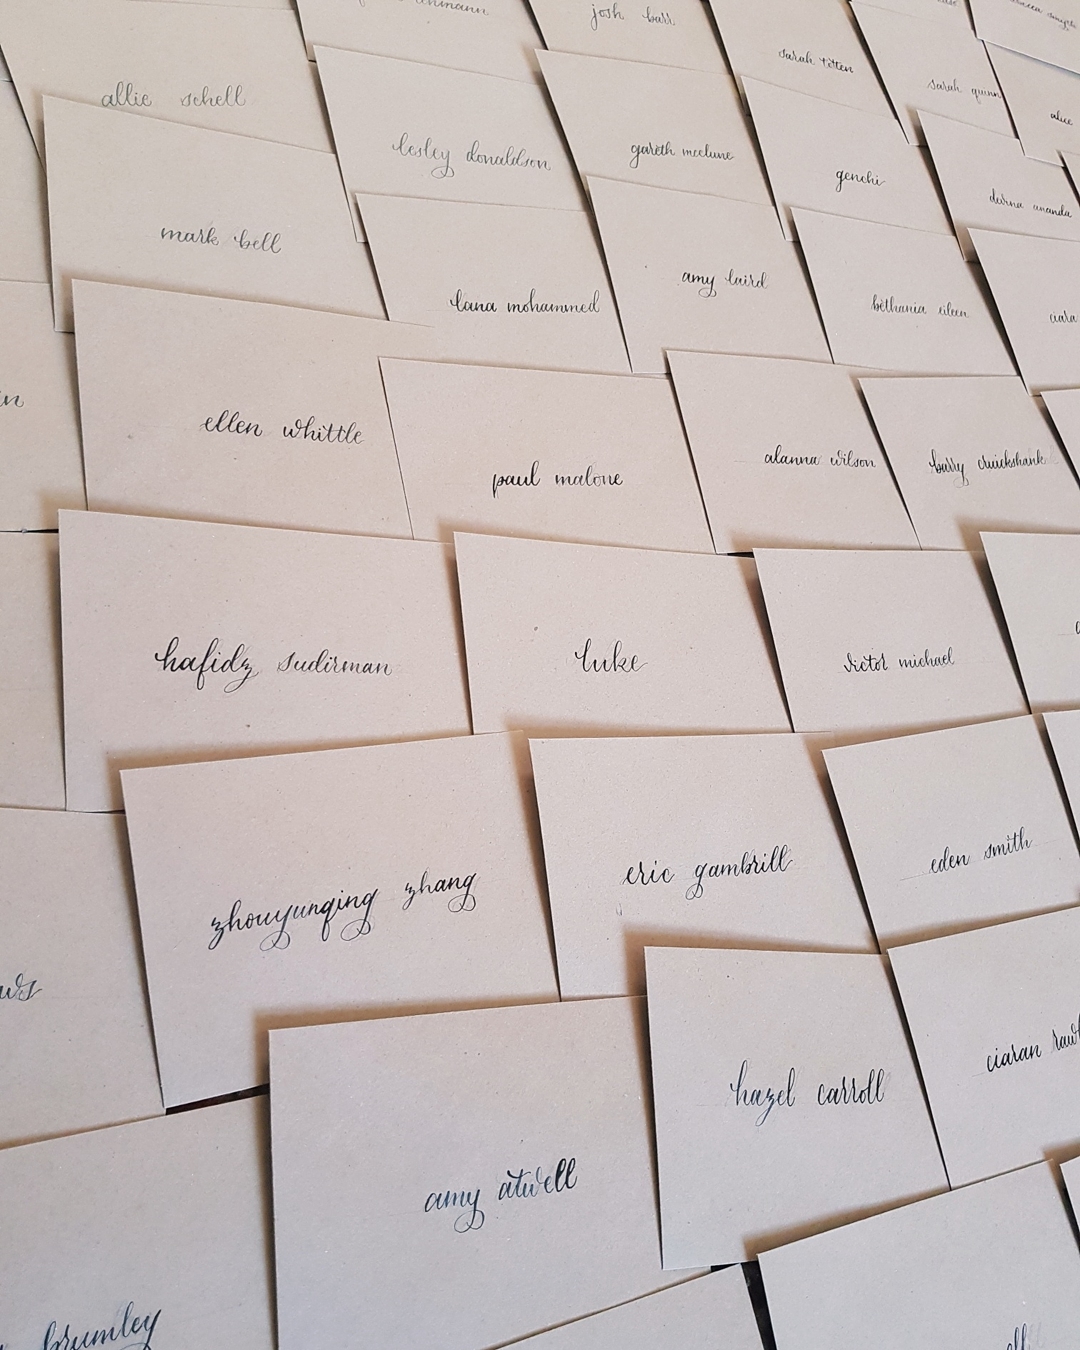 josh barr
sarah titten
allie schell
sarah quinn
alice
lesley donaldson
gareth mcclune
genchi
ananda
mark bell
lana mohammed
amy laird
bethania eileen
ciara
ellen whittle
paul malone
alanna wilson
barry cruickshank
hafidz sudirman
luke
victor michael
zhouyunqing zhang
eric gambrill
eden smith
hazel carroll
ciaran
amy atwell
brumley